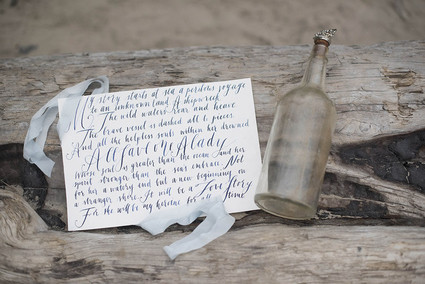 My story starts at sea a perilous voyage
to an unknown land A shipwreck
The wild waters roar and heave
The brave vessel is dashed all to pieces
And all the helpless souls within her drowned
All save one A lady
Whose soul is greater than the ocean and her
spirit stronger than the sea's embrace Not
for her a watery end but a new beginning on
a stranger shore It will be a Love Story
For she will be my heroine for all time